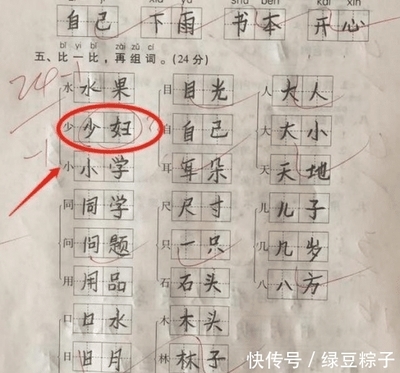 zì jǐ xià yǔ shū běn kāi xīn
自己 下雨 书本 开心
bǐ yi bǐ zài zǔ cí
五、比一比,再组词。(24分)
24-1
水 水果 目 目光 人 大人
少 少妇 自 自己 大 大小
-1
小 小学 耳 耳朵 天 天地
同 同学 尺 尺寸 儿 儿子
问 问题 只 一只 几 几岁
用 用品 石 石头 八 八方
口 口水 木 木头
日 日月 林 林子
快传号/绿豆粽子